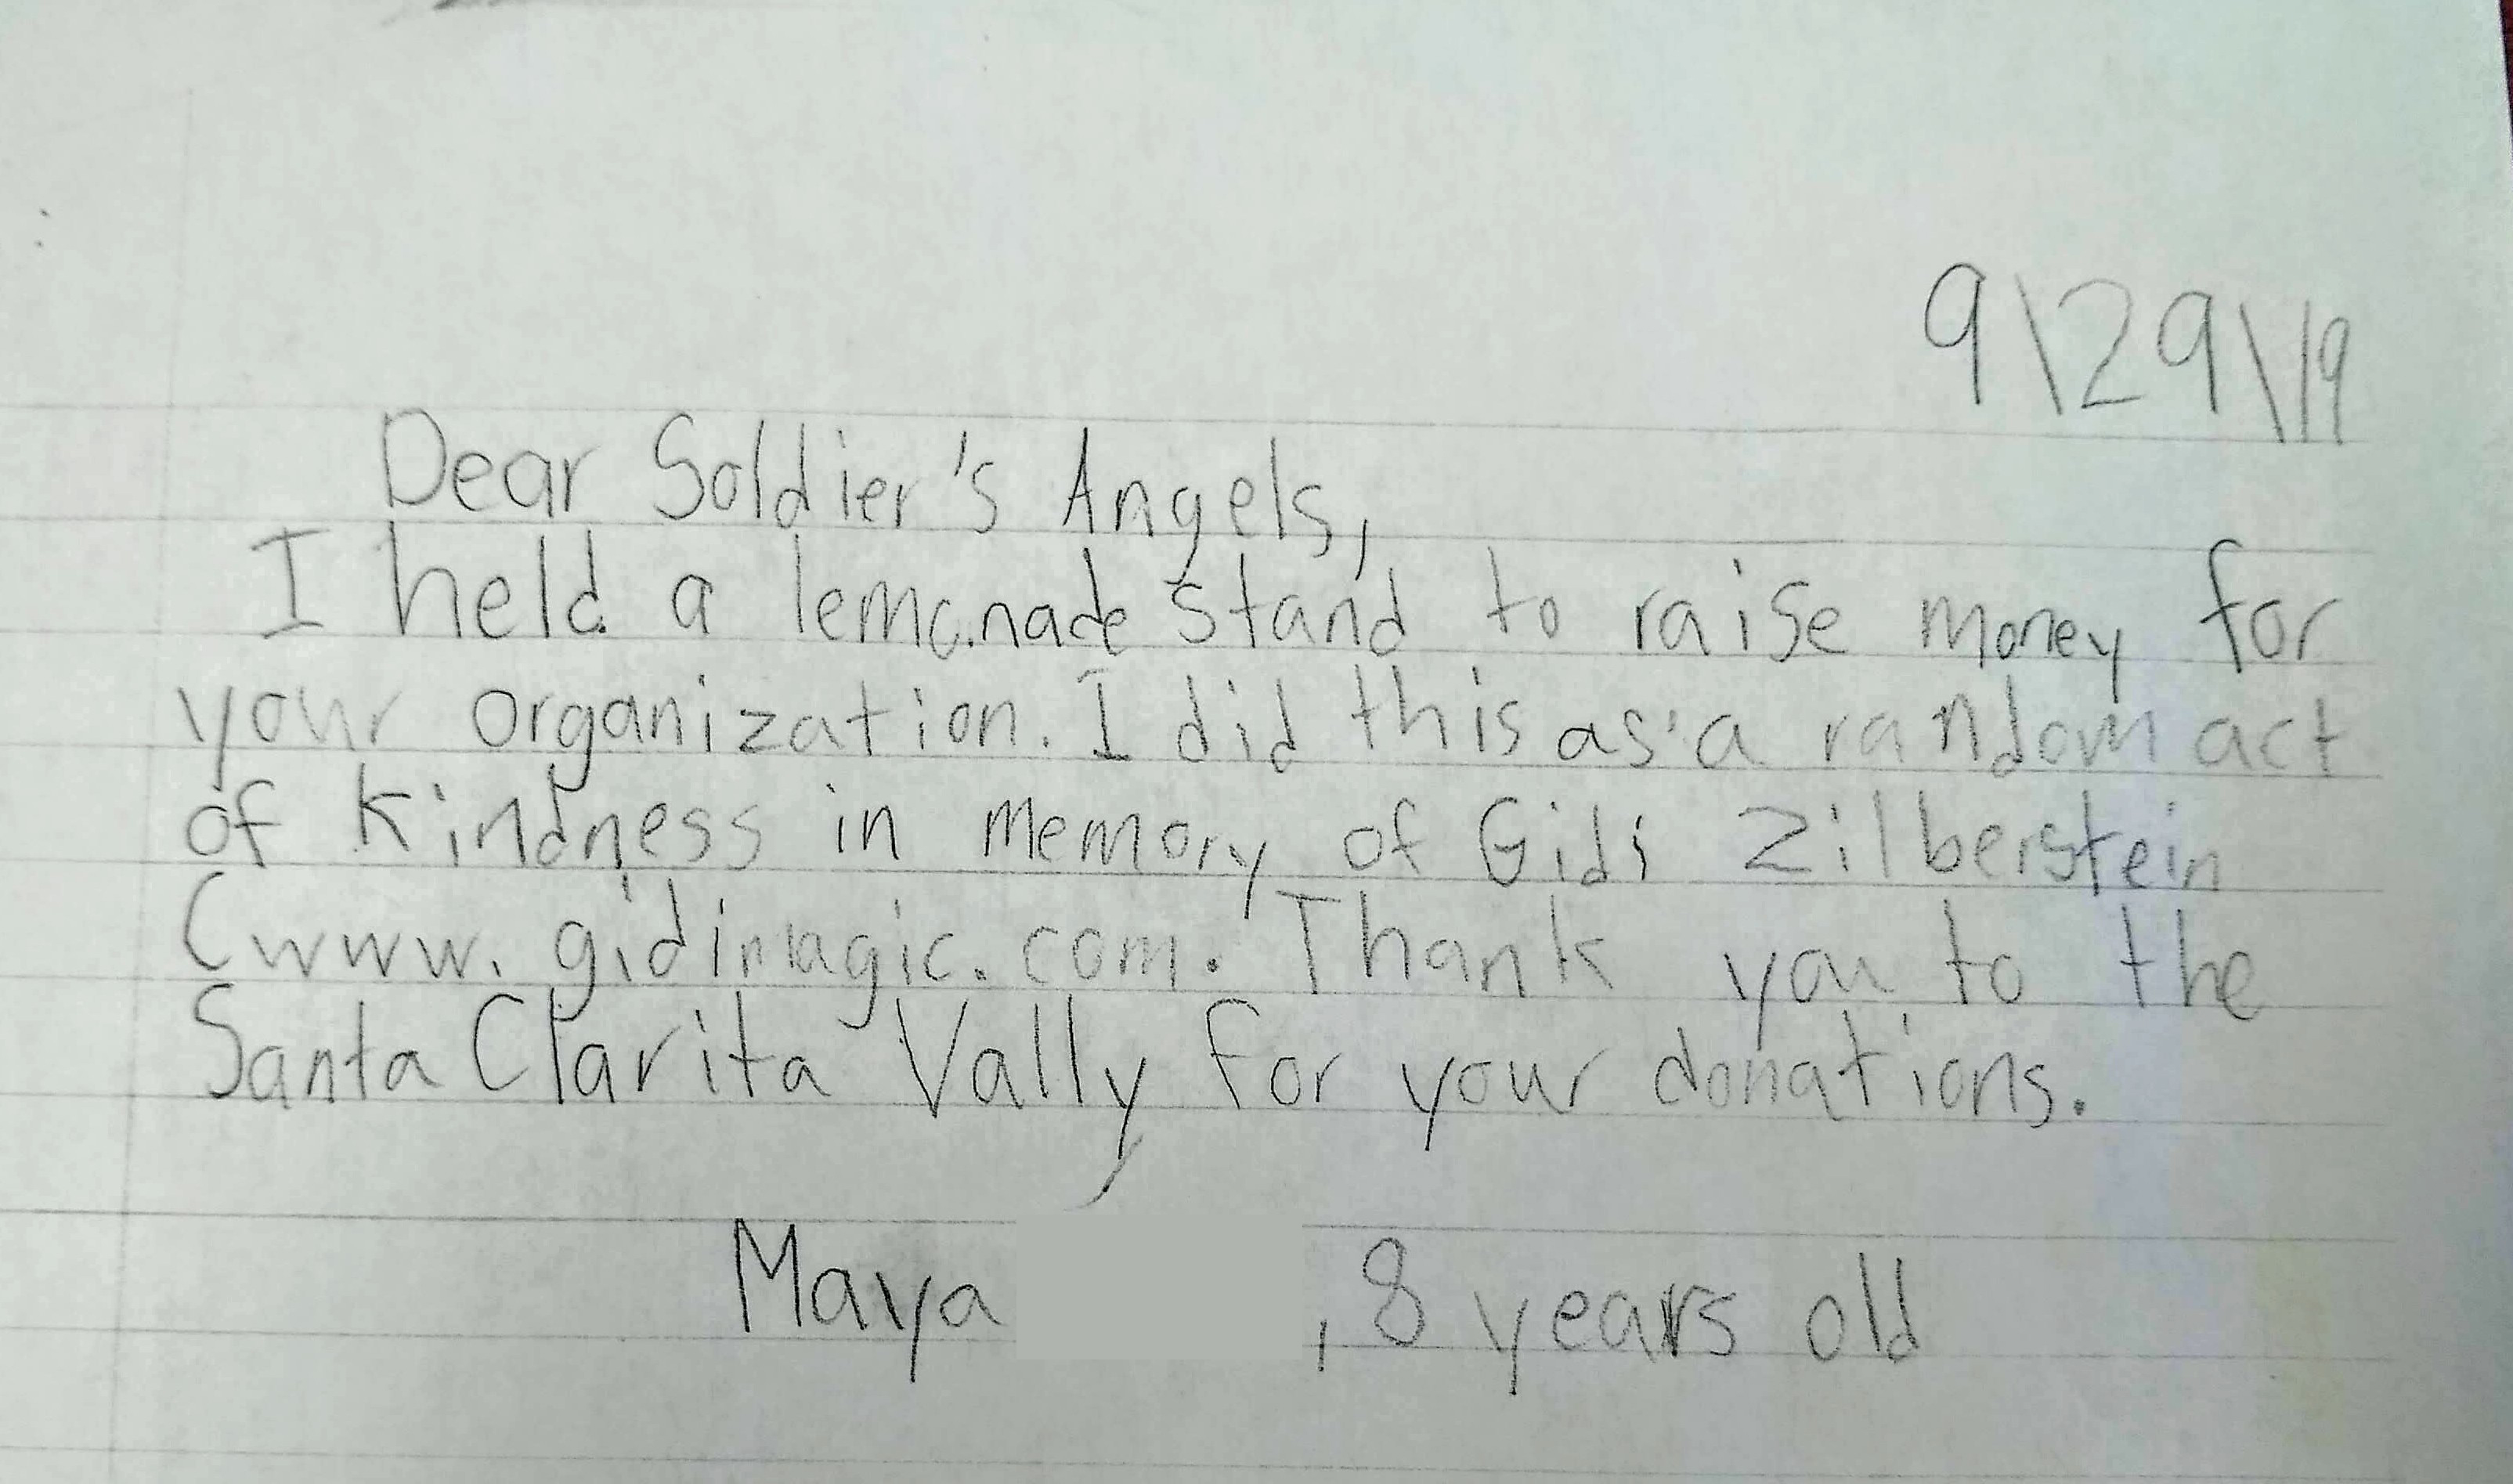 9\29\19
Dear Soldier's Angels,
I held a lemonade stand to raise money for
your organization. I did this as a random act
of kindness in memory of Gidi Zilberstein
(www.gidimagic.com. Thank you to the
Santa Clarita Vally for your donations.
Maya , 8 years old